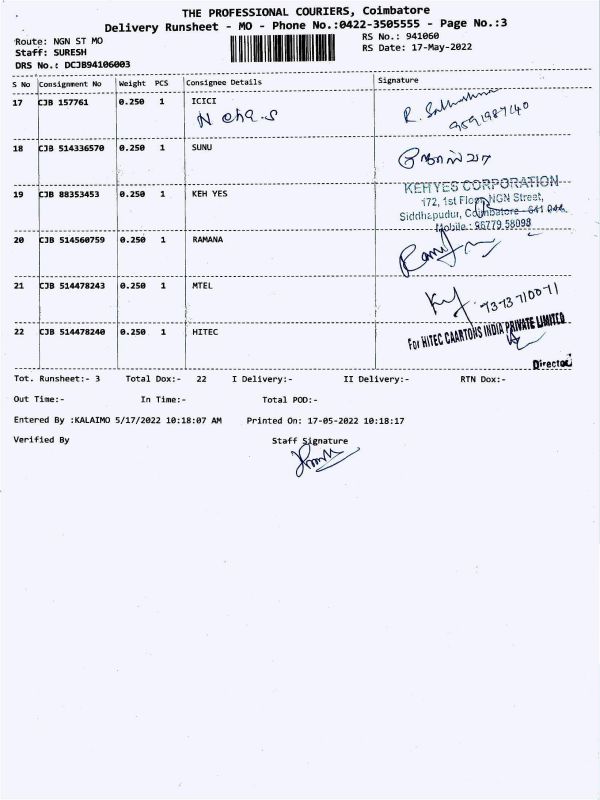 THE PROFESSIONAL COURIERS, Coimbatore
Delivery Runsheet - MO - Phone No.:0422-3505555 - Page No.:3
Route: NGN ST MO
RS No.: 941060
Staff: SURESH
RS Date: 17-May-2022
DRS No.: DCJB94106003
S No Consignment No Weight PCS Consignee Details Signature
17 CJB 157761 0.250 1 ICICI
18 CJB 514336570 0.250 1 SUNU
19 CJB 88353453 0.250 1 KEH YES
KEHYES CORPORATION
172, 1st Floor, NGN Street,
Siddhapudur, Coimbatore - 641 044.
Mobile : 96779 58098
20 CJB 514560759 0.250 1 RAMANA
21 CJB 514478243 0.250 1 MTEL
7373710071
22 CJB 514478240 0.250 1 HITEC
For HITEC CAARTONS INDIA PRIVATE LIMITED
Director
Tot. Runsheet:- 3 Total Dox:- 22 I Delivery:- II Delivery:- RTN Dox:-
Out Time:- In Time:- Total POD:-
Entered By :KALAIMO 5/17/2022 10:18:07 AM Printed On: 17-05-2022 10:18:17
Verified By Staff Signature